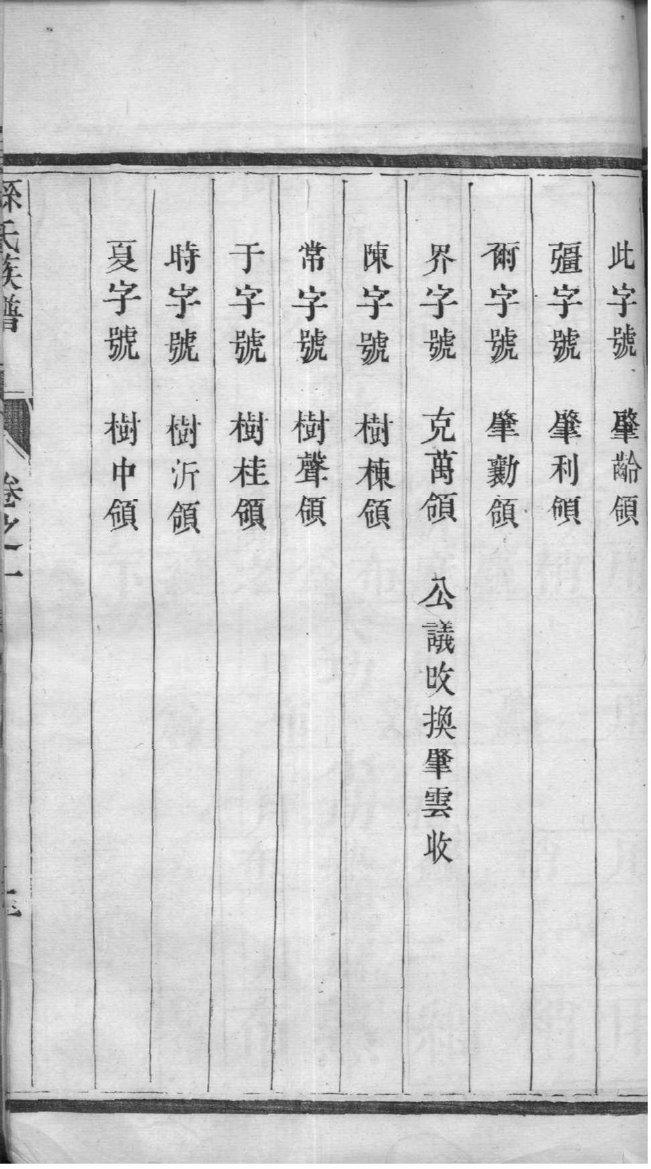 此字號 肇齡領
疆字號 肇利領
爾字號 肇勷領
界字號 克萬領 公議改換肇雲收
陳字號 樹棟領
常字號 樹聲領
于字號 樹桂領
時字號 樹沂領
夏字號 樹中領
孫氏族譜 卷之一